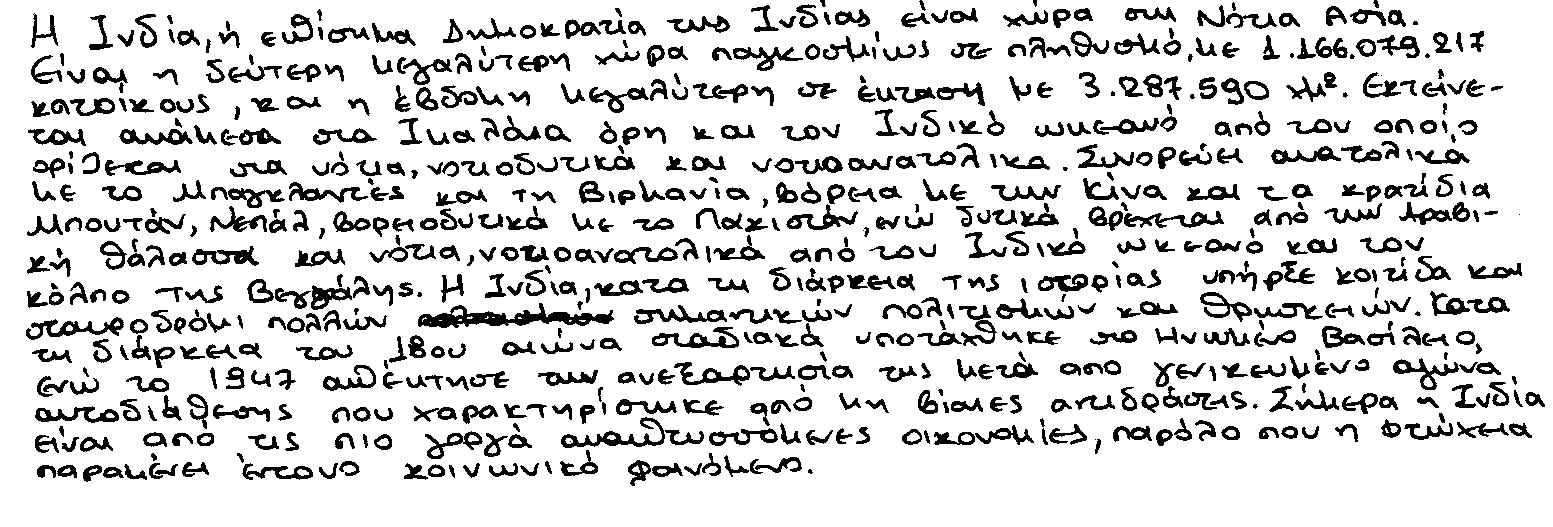 Η Ινδία, ή επίσημα Δημοκρατία της Ινδίας είναι χώρα στη Νότια Ασία.
Είναι η δεύτερη μεγαλύτερη χώρα παγκοσμίως σε πληθυσμό, με 1.166.079.217
κατοίκους, και η έβδομη μεγαλύτερη σε έκταση με 3.287.590 χμ². Εκτείνε-
ται ανάμεσα στα Ιμαλάια όρη και τον Ινδικό ωκεανό από τον οποίο
ορίζεται στα νότια, νοτιοδυτικά και νοτιοανατολικά. Συνορεύει ανατολικά
με το Μπαγκλαντές και τη Βιρμανία, βόρεια με την Κίνα και τα κρατίδια
Μπουτάν, Νεπάλ, βορειοδυτικά με το Πακιστάν, ενώ δυτικά βρέχεται από την Αραβι-
κή θάλασσα και νότια, νοτιοανατολικά από τον Ινδικό ωκεανό και τον
κόλπο της Βεγγάλης. Η Ινδία, κατα τη διάρκεια της ιστορίας υπήρξε κοιτίδα και
σταυροδρόμι πολλών σημαντικών πολιτισμών και θρησκειών. Κατα
τη διάρκεια του 18ου αιώνα σταδιακά υποτάχθηκε στο Ηνωμένο Βασίλειο,
ενώ το 1947 απέκτησε την ανεξαρτησία της μετά από γενικευμένο αγώνα
αυτοδιάθεσης που χαρακτηρίστηκε από μη βίαιες αντιδράσεις. Σήμερα η Ινδία
είναι από τις πιο γοργά αναπτυσσόμενες οικονομίες, παρόλο που η φτώχεια
παραμένει έντονο κοινωνικό φαινόμενο.